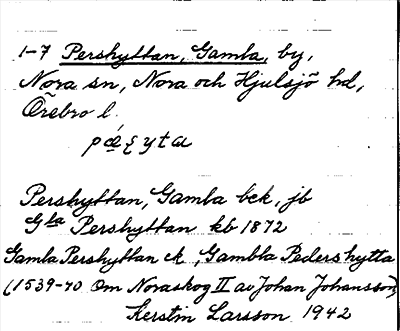 1-7 Pershyttan, Gamla, by,
Nora sn, Nora och Hjulsjö hd,
Örebro l.
Pershyttan, Gamla bck, jb
Gla Pershyttan kb 1872
Gamla Pershyttan ek, Gambla Pedershytta
(1539-40 Om Noraskog II av Johan Johansson)
Kerstin Larsson 1942